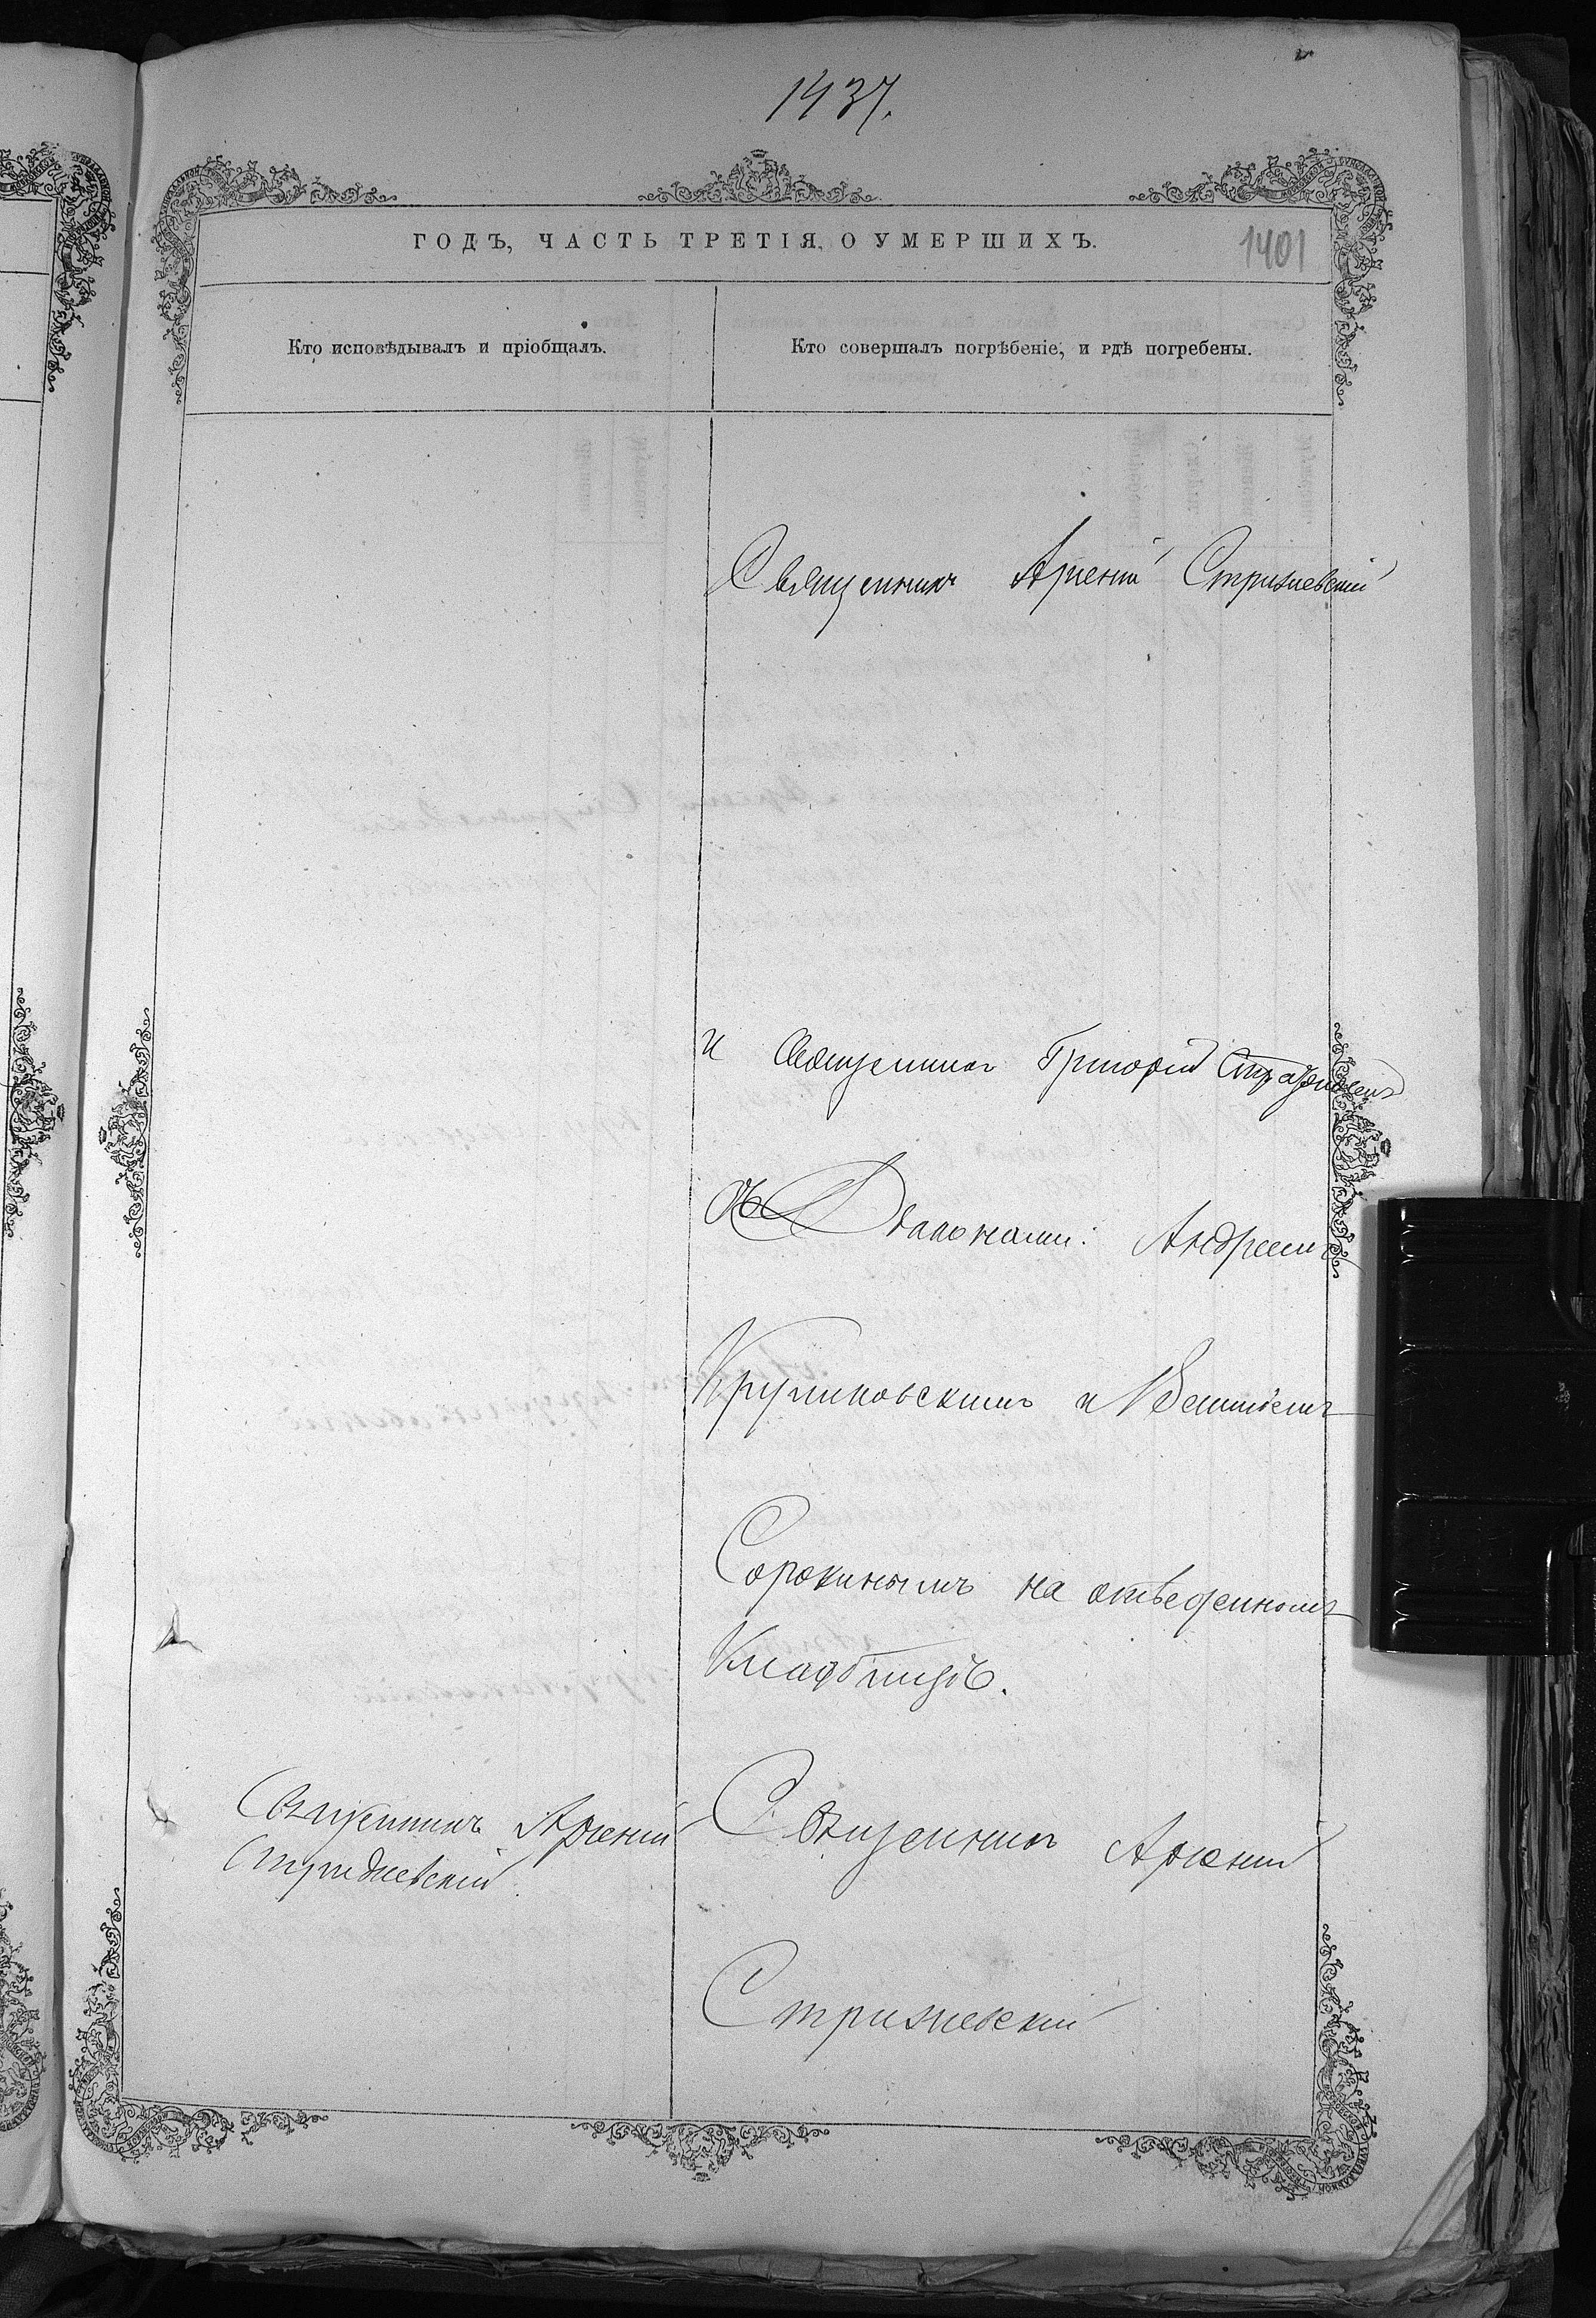 1437.
ГОДЪ, ЧАСТЬ ТРЕТІЯ, О УМЕРШИХЪ.
1401
Кто исповѣдывалъ и пріобщалъ.
Кто совершалъ погрѣбеніе, и гдѣ погребены.
Священникъ Арсеній Стрижевскій
и Священникъ Григорій
съ Діаконами: Андреемъ
Крупиковскимъ и
Сорокинымъ на отведенномъ
Кладбищѣ.
Священникъ Арсеній
Стрижевскій.
Священникъ Арсеній
Стрижевскій